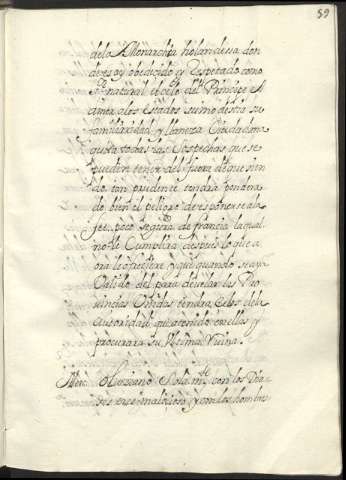 59
dela Monarchia holandesa don
de es oy obedecido y Respetado como
s.or natural el celo del Principe
a mea los estados sumo destra su
familiaridad y llaneza Ciudadana
quita todas las Sospechas que se
pueden tener del fuera de que sien
do tan prudente tendra pondera
do bien el peligro de exponerse ala
fee poco segura de francia la qual
no le Cumplira despues lo que a
ora le ofreciere y que quando se aya
Valido del para devolar las Pro
uincias Vnidas tendra Celos dela
autoridad que a tenido en ellas y
procurara su Vltima Ruina.
Merc. con los
y con los hombres